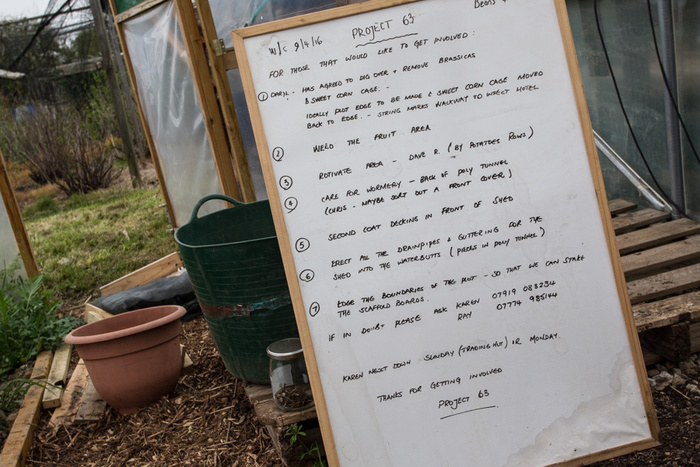 Beans &
W/C 9/4/16 PROJECT 63
FOR THOSE THAT WOULD LIKE TO GET INVOLVED:
① DARYL - HAS AGREED TO DIG OVER & REMOVE BRASSICAS
& SWEET CORN CAGE. -
IDEALLY PLOT EDGE TO BE MADE & SWEET CORN CAGE MOVED
BACK TO EDGE. - STRING MARKS WALKWAY TO INSECT HOTEL
② WEED THE FRUIT AREA
③ ROTIVATE AREA - DAVE R. (BY POTATOES ROWS)
④ CARE FOR WORMERY - BACK OF POLY TUNNEL
(CHRIS - MAYBE SORT OUT A FRONT COVER)
⑤ SECOND COAT DECKING IN FRONT OF SHED
⑥ ERECT ALL THE DRAINPIPES & GUTTERING FOR THE
SHED INTO THE WATERBUTTS (PIECES IN POLY TUNNEL)
⑦ EDGE THE BOUNDARIES OF THE PLOT - SO THAT WE CAN START
THE SCAFFOLD BOARDS.
IF IN DOUBT PLEASE ASK KAREN 07919 088234
RAY 07774 985144
KAREN NEXT DOWN SUNDAY (TRADING HUT) OR MONDAY.
THANKS FOR GETTING INVOLVED
PROJECT 63